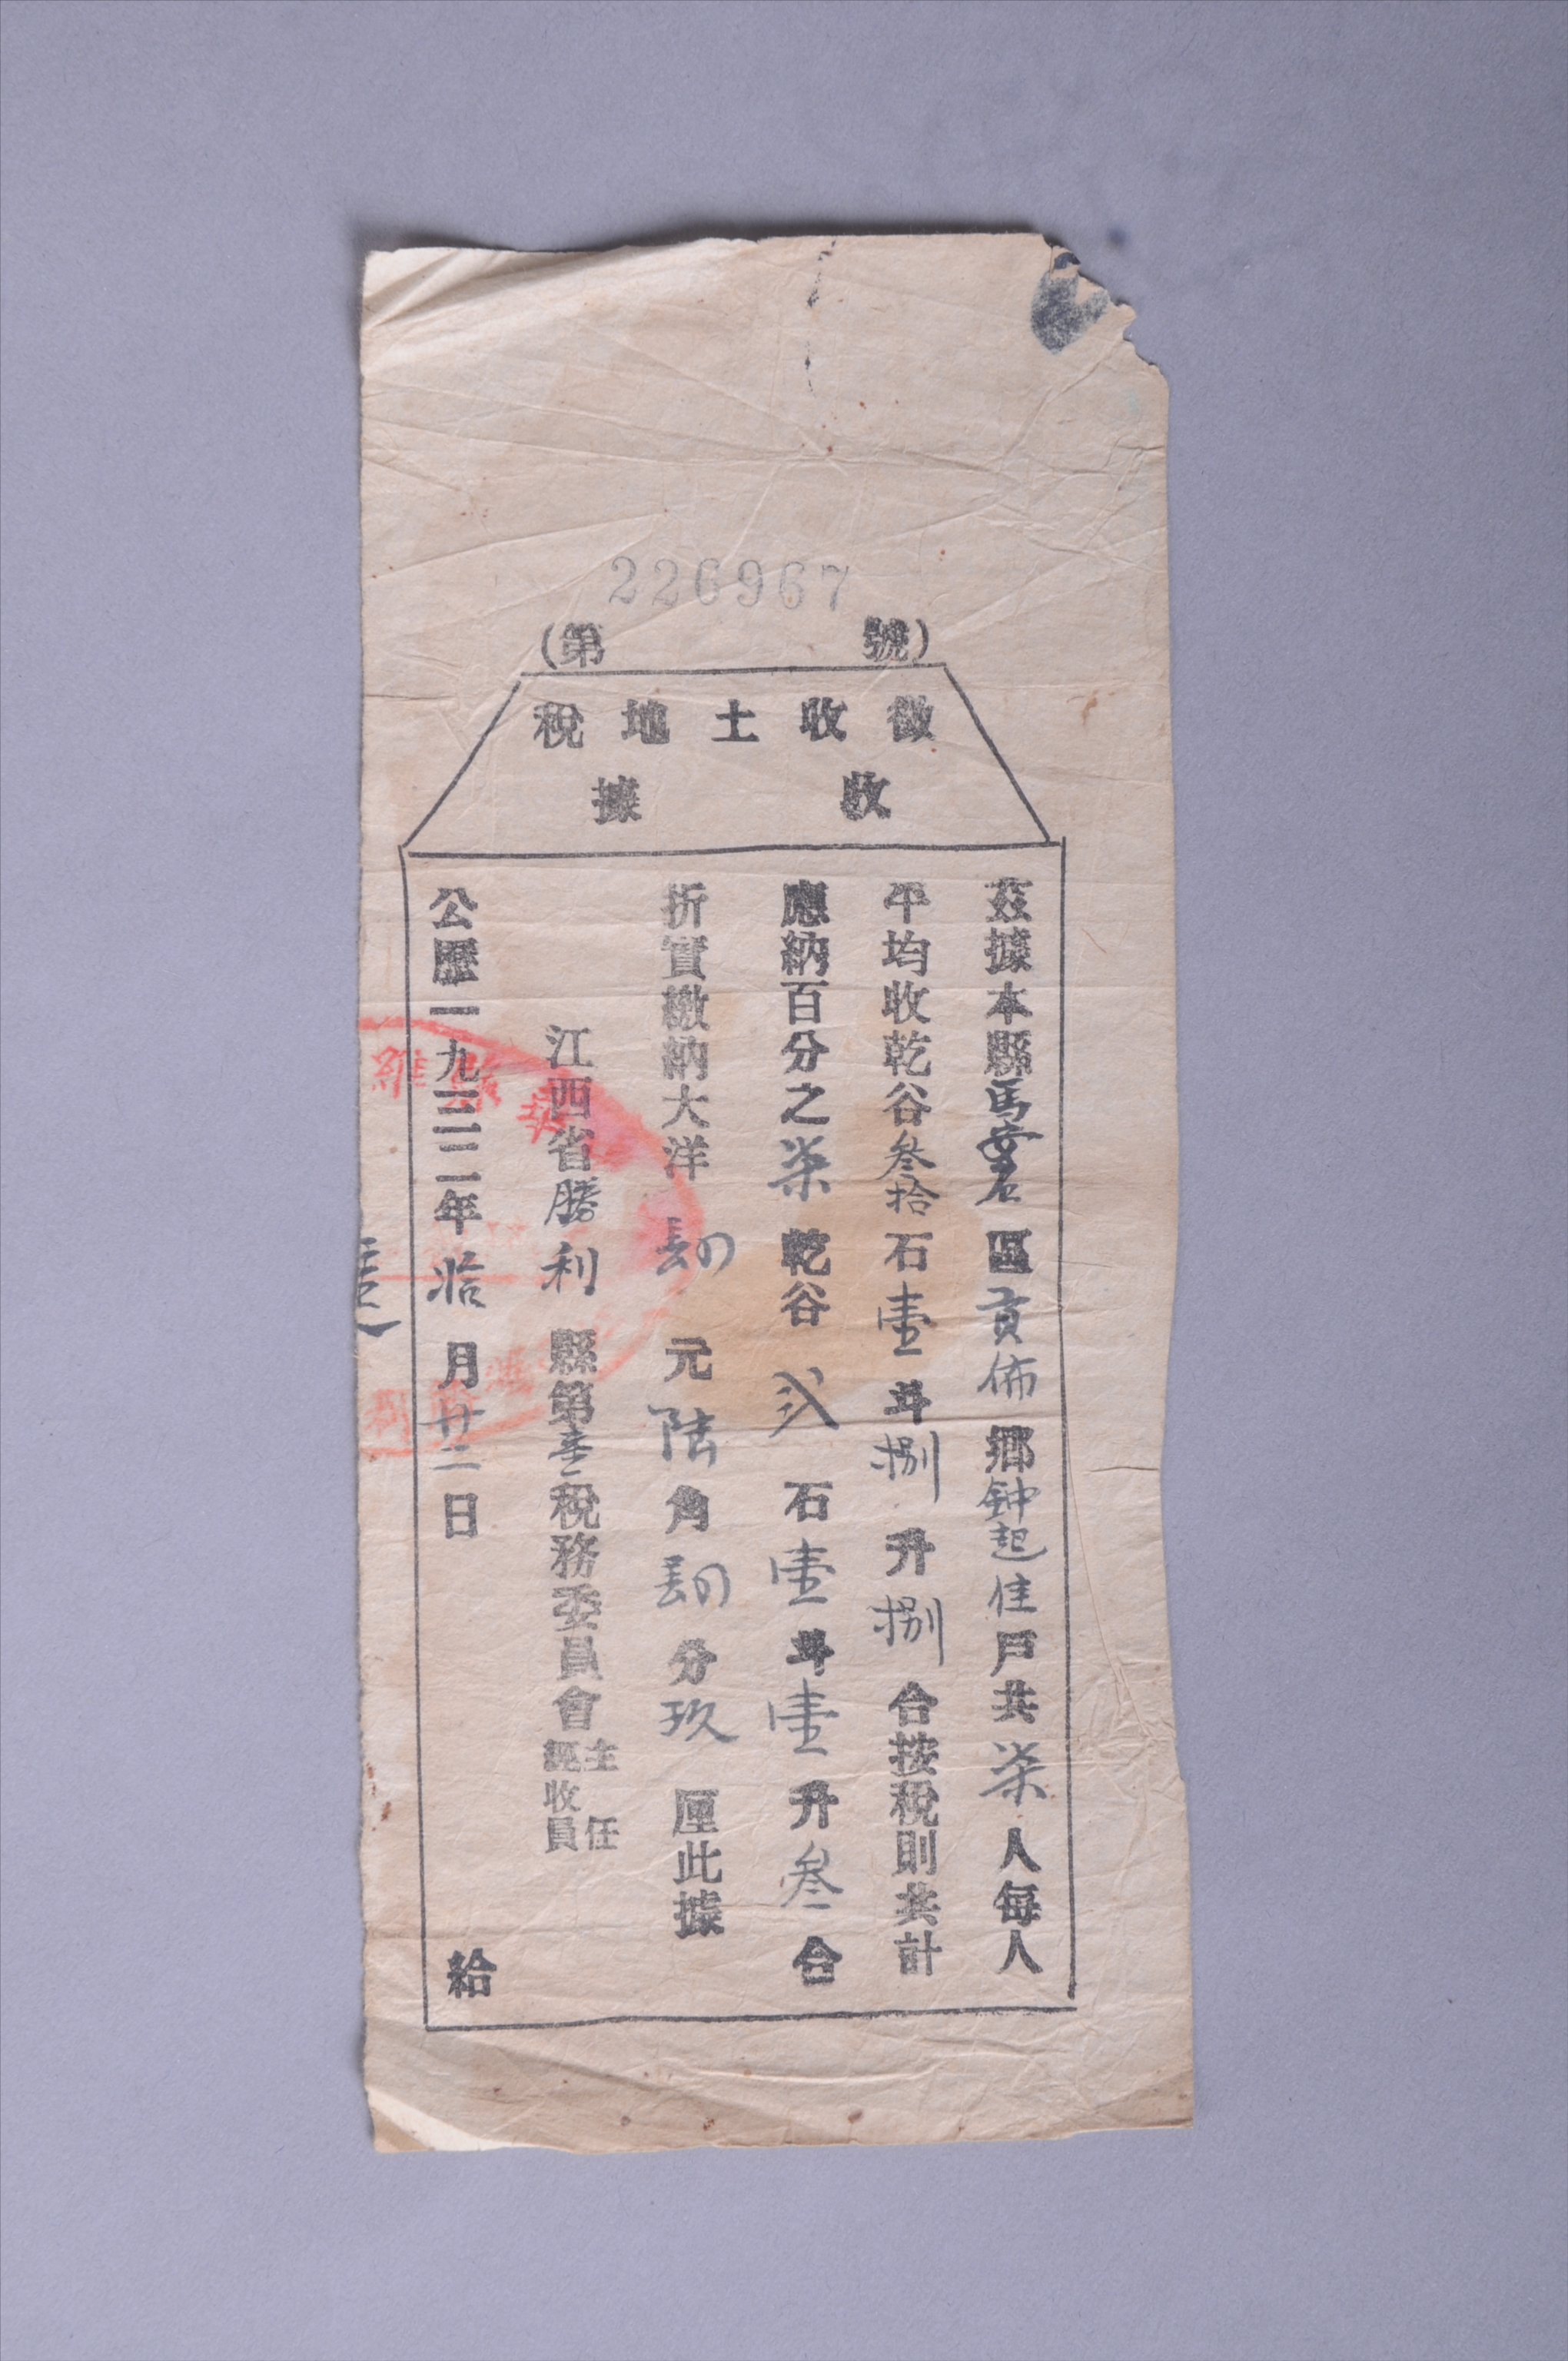 226967
(第 號)
徵收土地稅
收據
茲據本縣馬安石區貢佈鄉钟起佳戶共柒人每人
平均收乾谷叁拾石壹斗捌升捌合按稅則共計
應納百分之柒乾谷弍石壹斗壹升叁合
折實繳納大洋 元陆角 分玖厘此據
江西省勝利縣第壹稅務委員會
主任
經收員
公歷一九三三年拾月廿二日
給